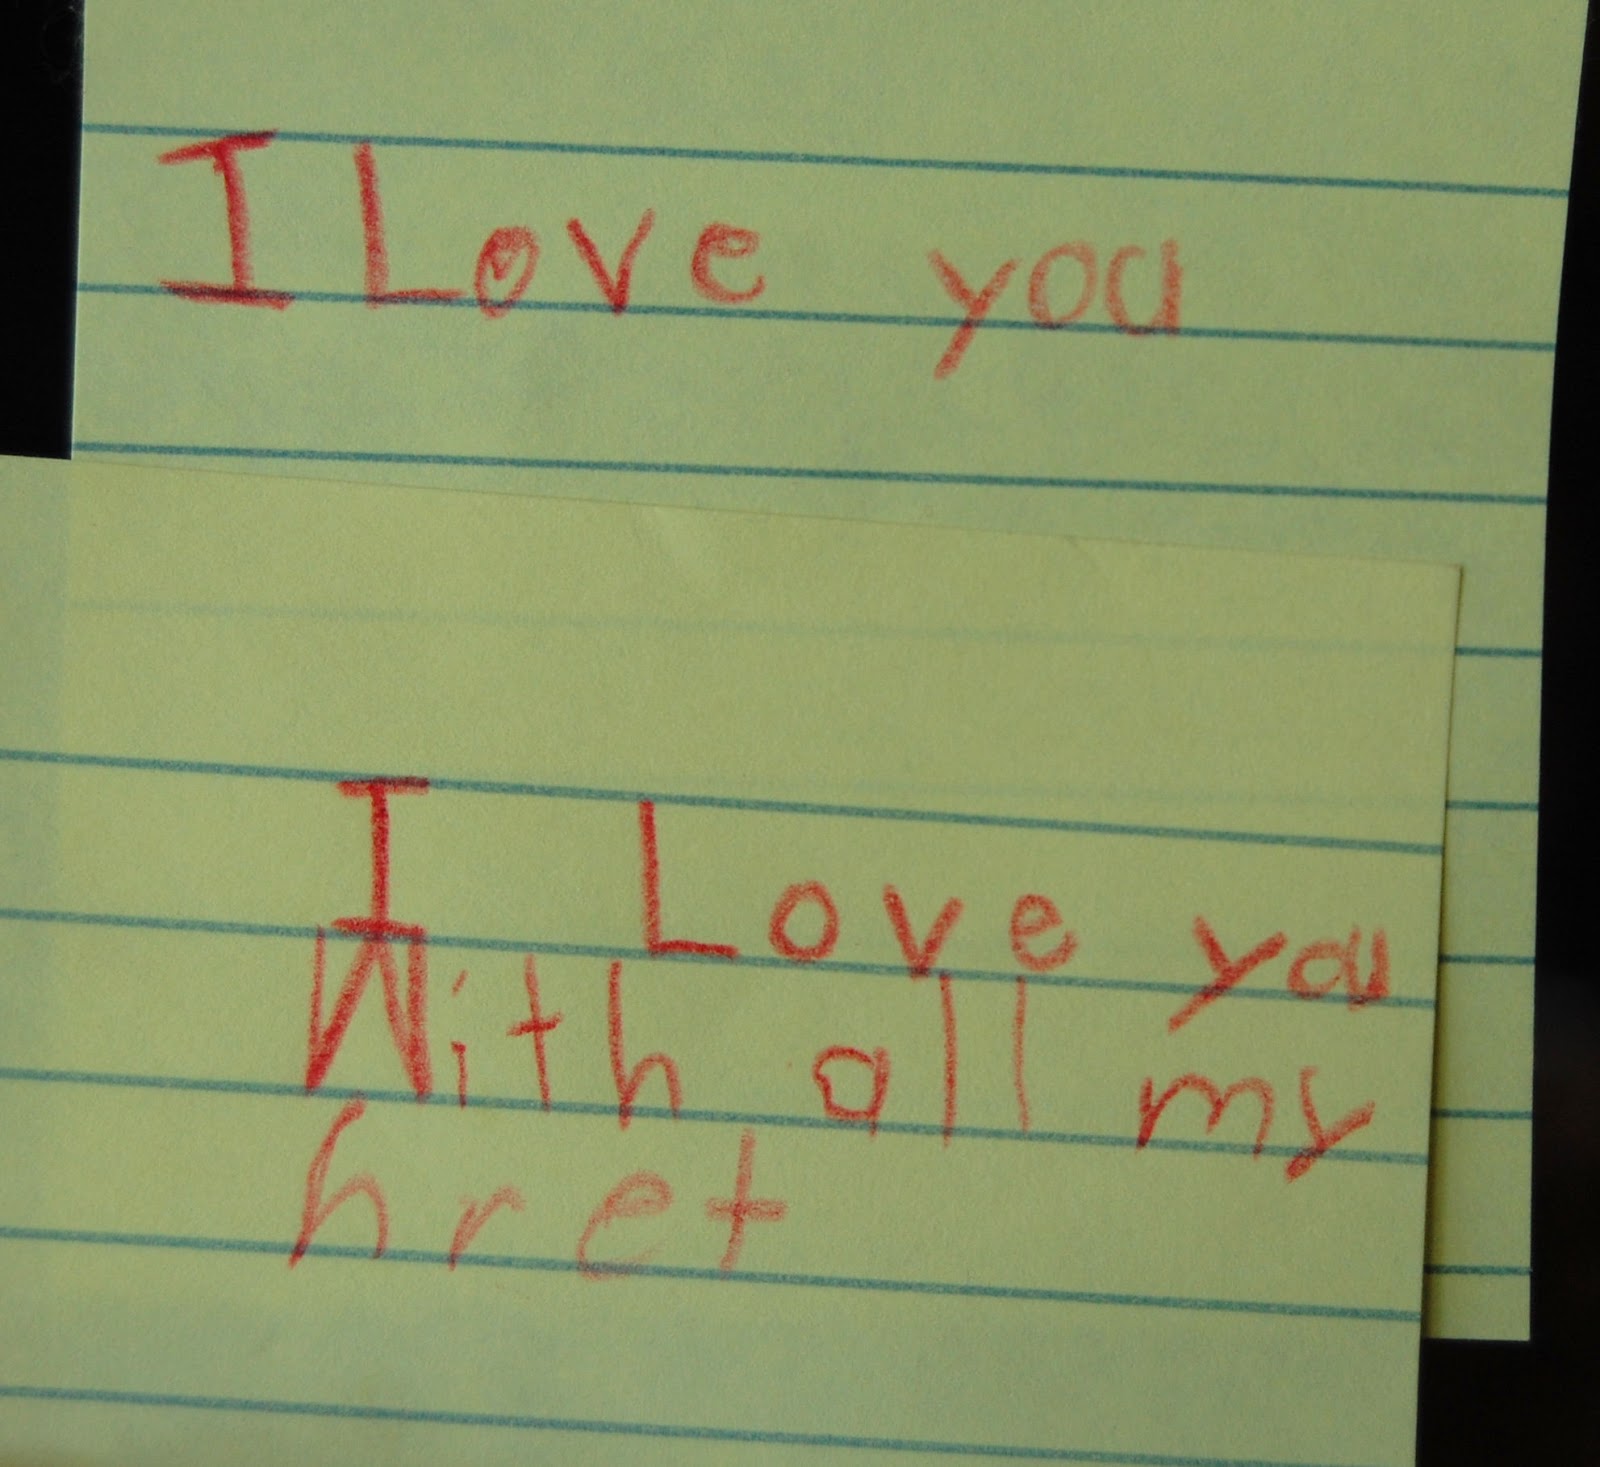 I Love you
I Love you
With all my
hret